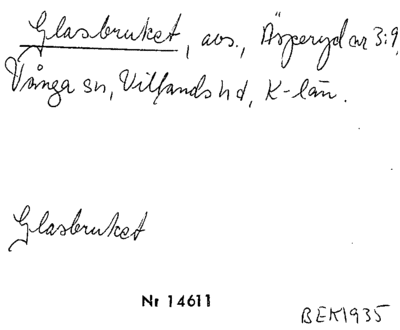 Glasbruket, avs., Äsperyd nr 3:9,
Vånga sn, Villands hd, K-län.
Glasbruket
Nr 14611
BEK1935